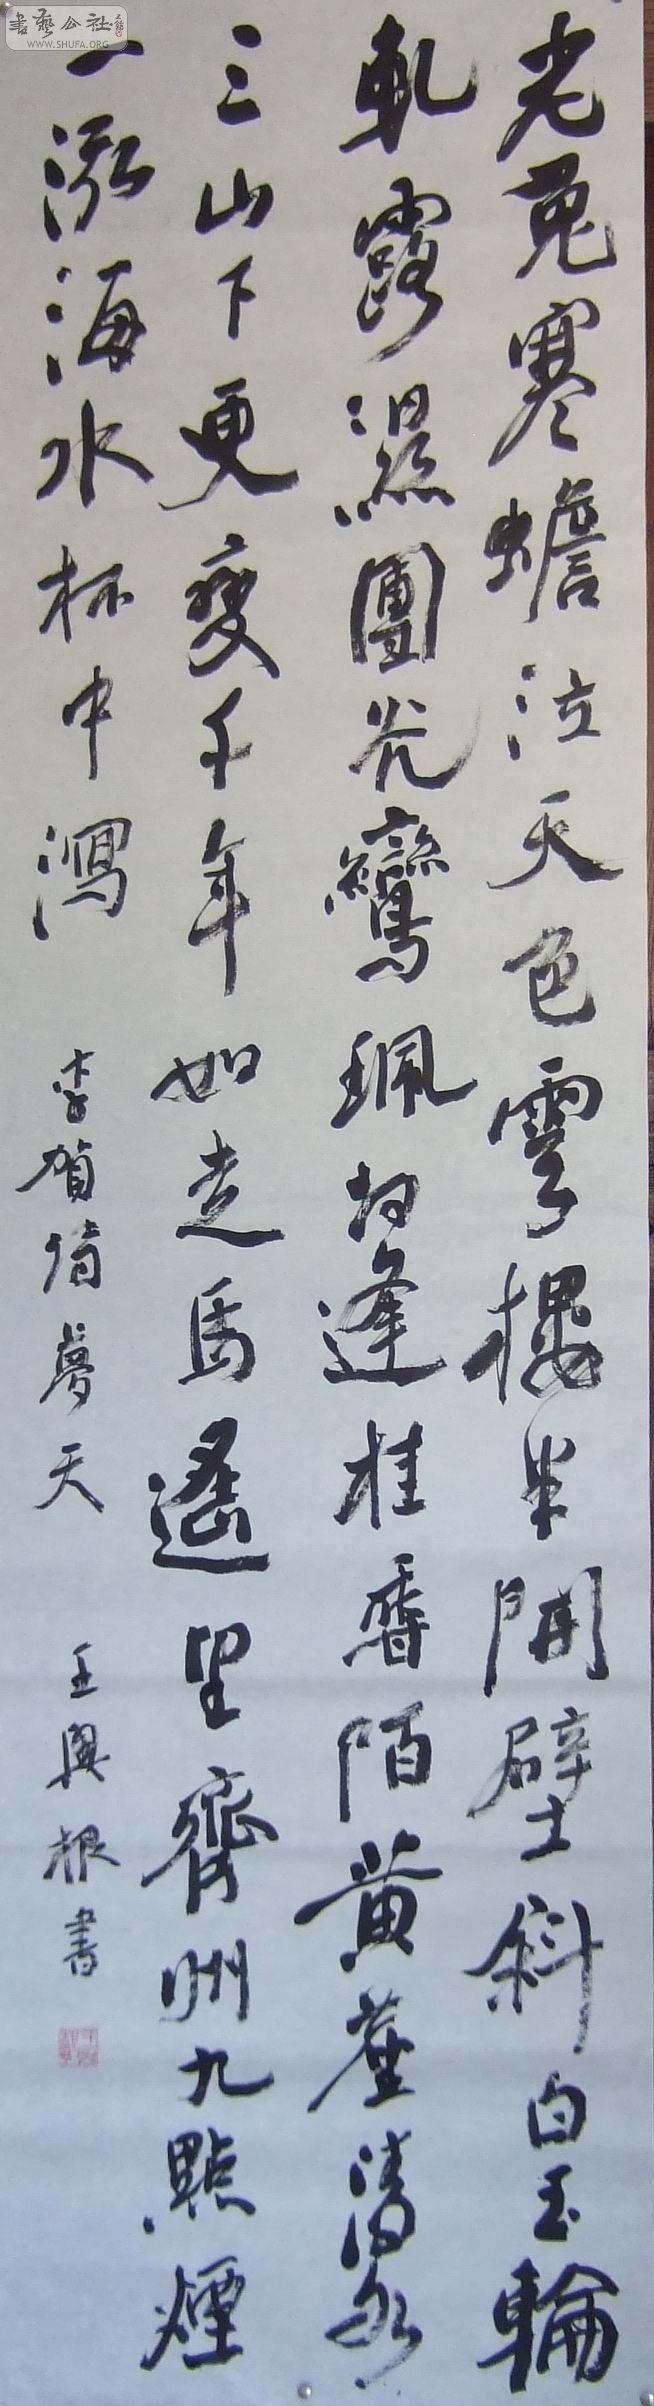 老兔寒蟾泣天色雲樓半開壁斜白玉輪
軋露濕團光鸞珮相逢桂香陌黃塵清水
三山下更變千年如走馬遙望齊州九點煙
一泓海水杯中瀉
李賀詩夢天
王興根書
書藝公社
WWW.SHUFA.ORG